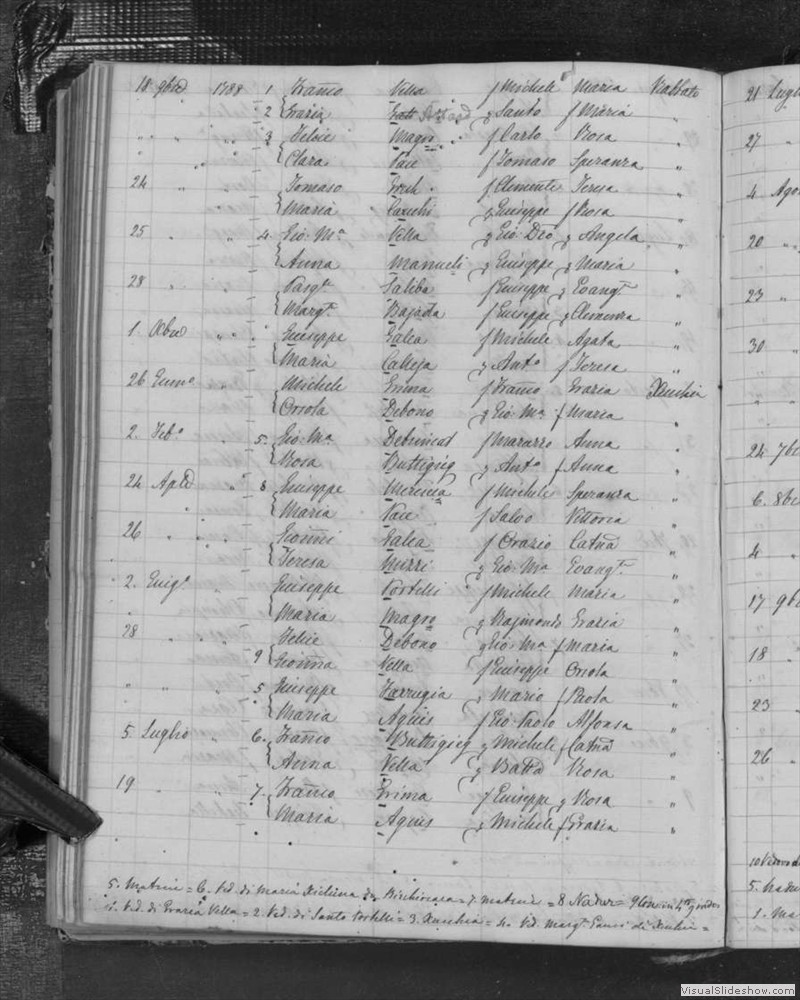 18 9bre 1788 1 Franco Vella f Michele Maria Rabbato
2 Grazia Gatt Azzopard q Santo f Maria "
" " " " 3 Felice Magro f Carlo Rosa "
Clara Pace f Tomaso Speranza "
24 " Tomaso Grech f Clemente Teresa "
Maria Cauchi q Giuseppe f Rosa "
25 " " 4 Gio: Ma Vella q Gio: Deo q Angela "
Anna Manueli q Giuseppe q Maria "
28 " Pasqe Saliba f Giuseppe q Evangta "
Margta Bajada f Giuseppe q Clemenza "
1 Xbre " " Giuseppe Galea f Michele Agata "
Maria Calleja q Anto f Teresa "
26 Genno " Michele Grima f Franco Grazia Xeuchia
Orsola Debono q Gio: Ma f Maria "
2. Febo " 5. Gio: Ma Debrincat f Anna "
Rosa Buttigieg q Anto f Anna "
24 Aple " 8 Giuseppe Mercieca f Michele Speranza "
Maria Pace f Salvo Vittoria "
26 " " " Gionni Galea f Orazio Catna "
Teresa Mizzi q Gio: Ma Evangta "
2. Giugo " Giuseppe Portelli f Michele Maria "
Maria Magro q Raimondo Grazia "
28 " " Felice Debono q Gio: Ma f Maria "
9 Gionna Vella f Giuseppe Orsola "
" " " 5 Giuseppe Farrugia q Mario f Paola "
Maria Agius f Gio: Paolo Alfonsa "
5 Luglio " 6. Franco Buttigieg q Michele f Catna "
Anna Vella q Batta Rosa "
19 " 7. Franco Grima f Giuseppe q Rosa "
Maria Agius q Michele f Grazia "
5. Matrice = 6. Ved. di Maria = 7 Matrice = 8 Nadur = 9 Con in 4to grado
1. Ved. di Grazia Vella = 2. Ved. di Santo Portelli = 3. Xeuchia = 4. Ved. Margta di Xeuchia =
21 Lugl
27 "
4 Ago
20 "
23 "
30 "
" "
24 7b
6. 8b
4 "
17 9b
18 "
23 "
26 "
5. Nadu
1. Ma
VisualSlideshow.com